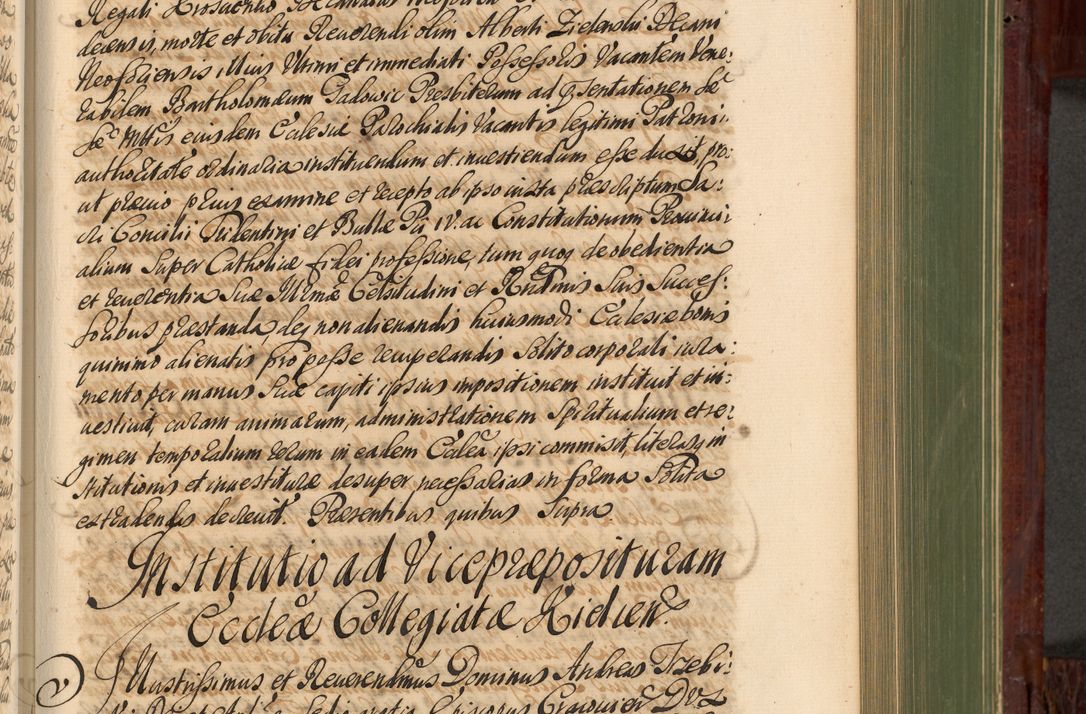 decensis, morte et obitu Reverendi olim Alberti Zielenski Decani
Neoforiensis illius Ultimi et immediati Possessoris Vacantem Vene:
rabilem Bartholomæum Gadowic Presbiterum ad præsentationem
ejusdem Ecclesiæ Parochialis Vacantis legitimi Patroni
authoritate ordinaria instituendum et investiendum esse duxit, pro:
ut prævio prius examine et recepto ab ipso iuxta præscriptum Sa:
cri Concilii Tridentini et Bullæ Pii IV. ac Constitutionum Provinci
alium super Catholicæ fidei professione, tum quoq de obedientia
et reverentia Suæ Illmæ Celsitudini et Rndmis Suis Succes:
soribus præstanda, deq non alienandis huiusmodi Ecclesiæ bonis
quinimo alienatis pro posse recuperandis Solito corporali iura:
mento per manus Suæ capiti ipsius impositionem instituit et in:
vestivit, curam animarum, administrationem Spiritualium et re:
gimen temporalium rerum in eadem Ecclea ipsi commisit, literasq in
stitutionis et investituræ desuper necessarias in forma Solita
extradendas decrevit. Præsentibus quibus Supra.
Institutio ad Vicepræposituram
Eccleæ Collegiatæ Kielcen.
Illustrissimus et Reverendissimus Dominus Andreas Trzebi: